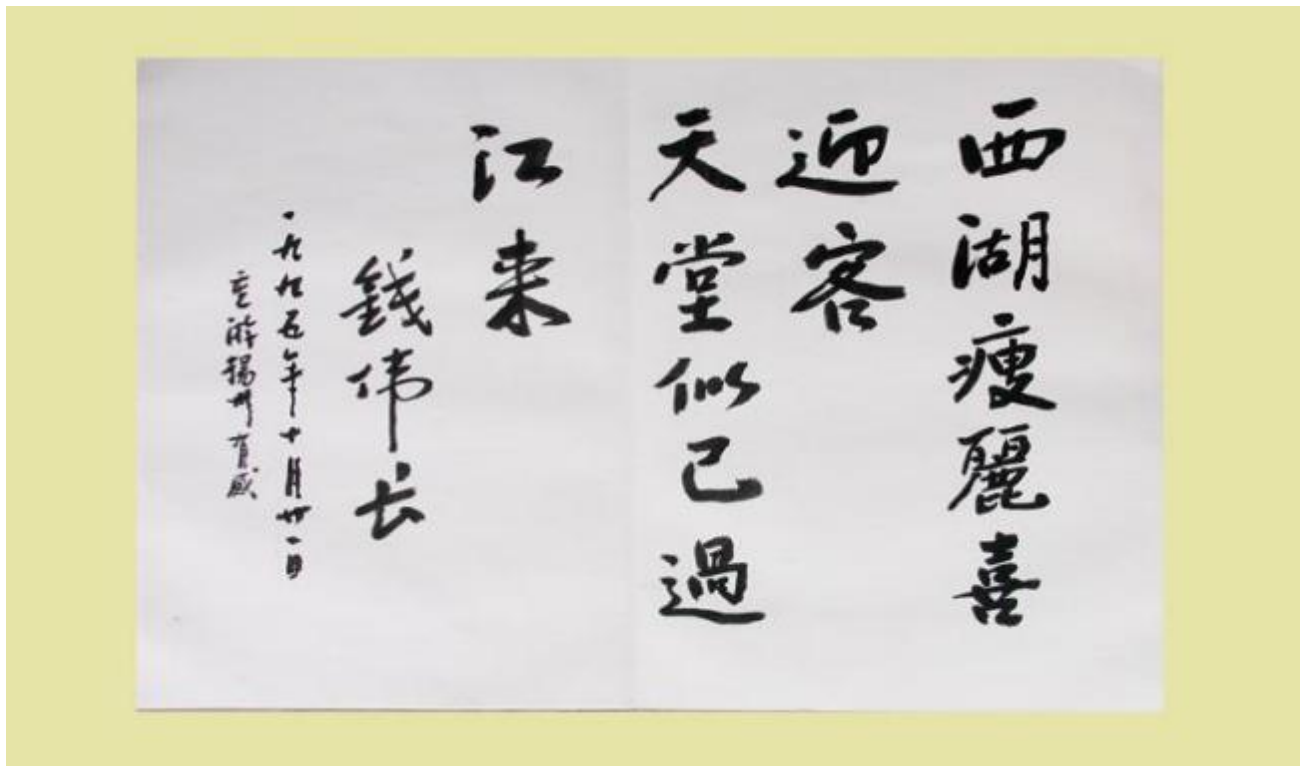 西湖瘦麗喜
迎客
天堂似已過
江来
錢伟长
一九九五年十月廿一日
重游揚州有感